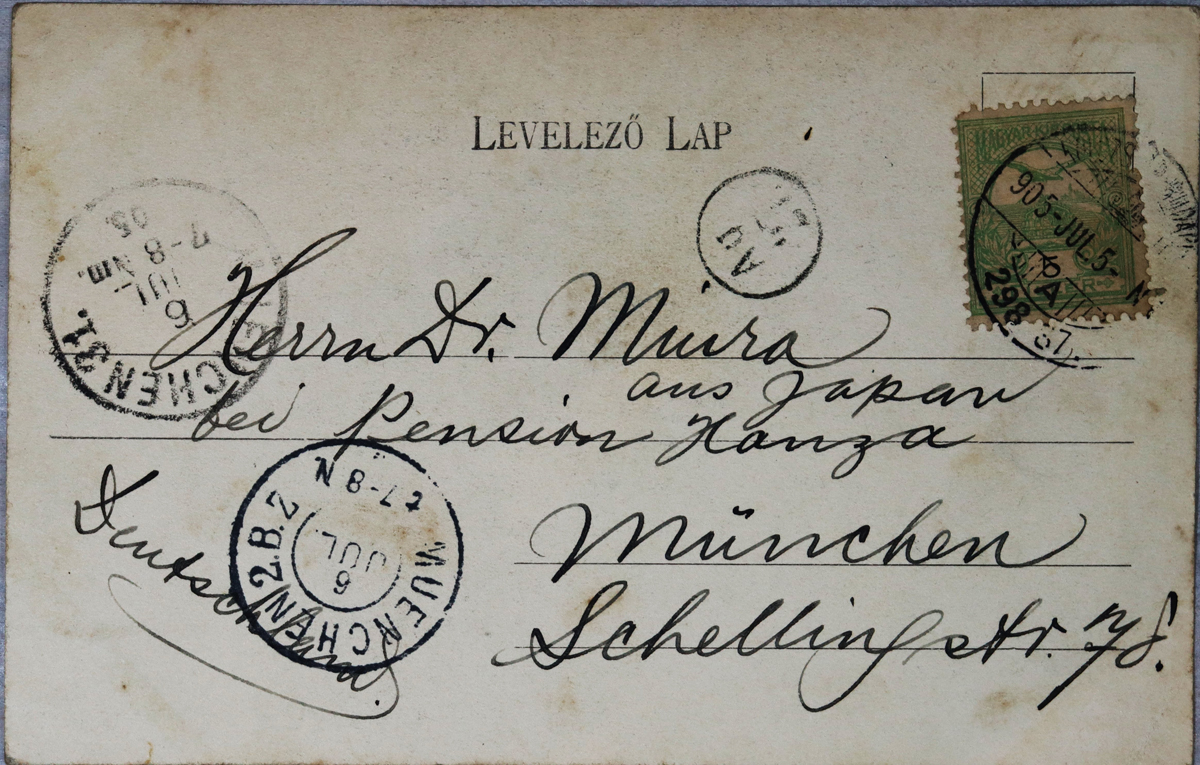 LEVELEZŐ LAP
MAGYAR KIR
905-JUL.5-N
6A
298
AG
6
JUL
7-8 Nm.
05.
CHEN 31.
Herrn Dr. Miura
aus Japan
bei Pension Hanza
München
Schellingstr. 78.
Deutschland.
MUENCHEN 2.B.2
6
JUL
7-8 N